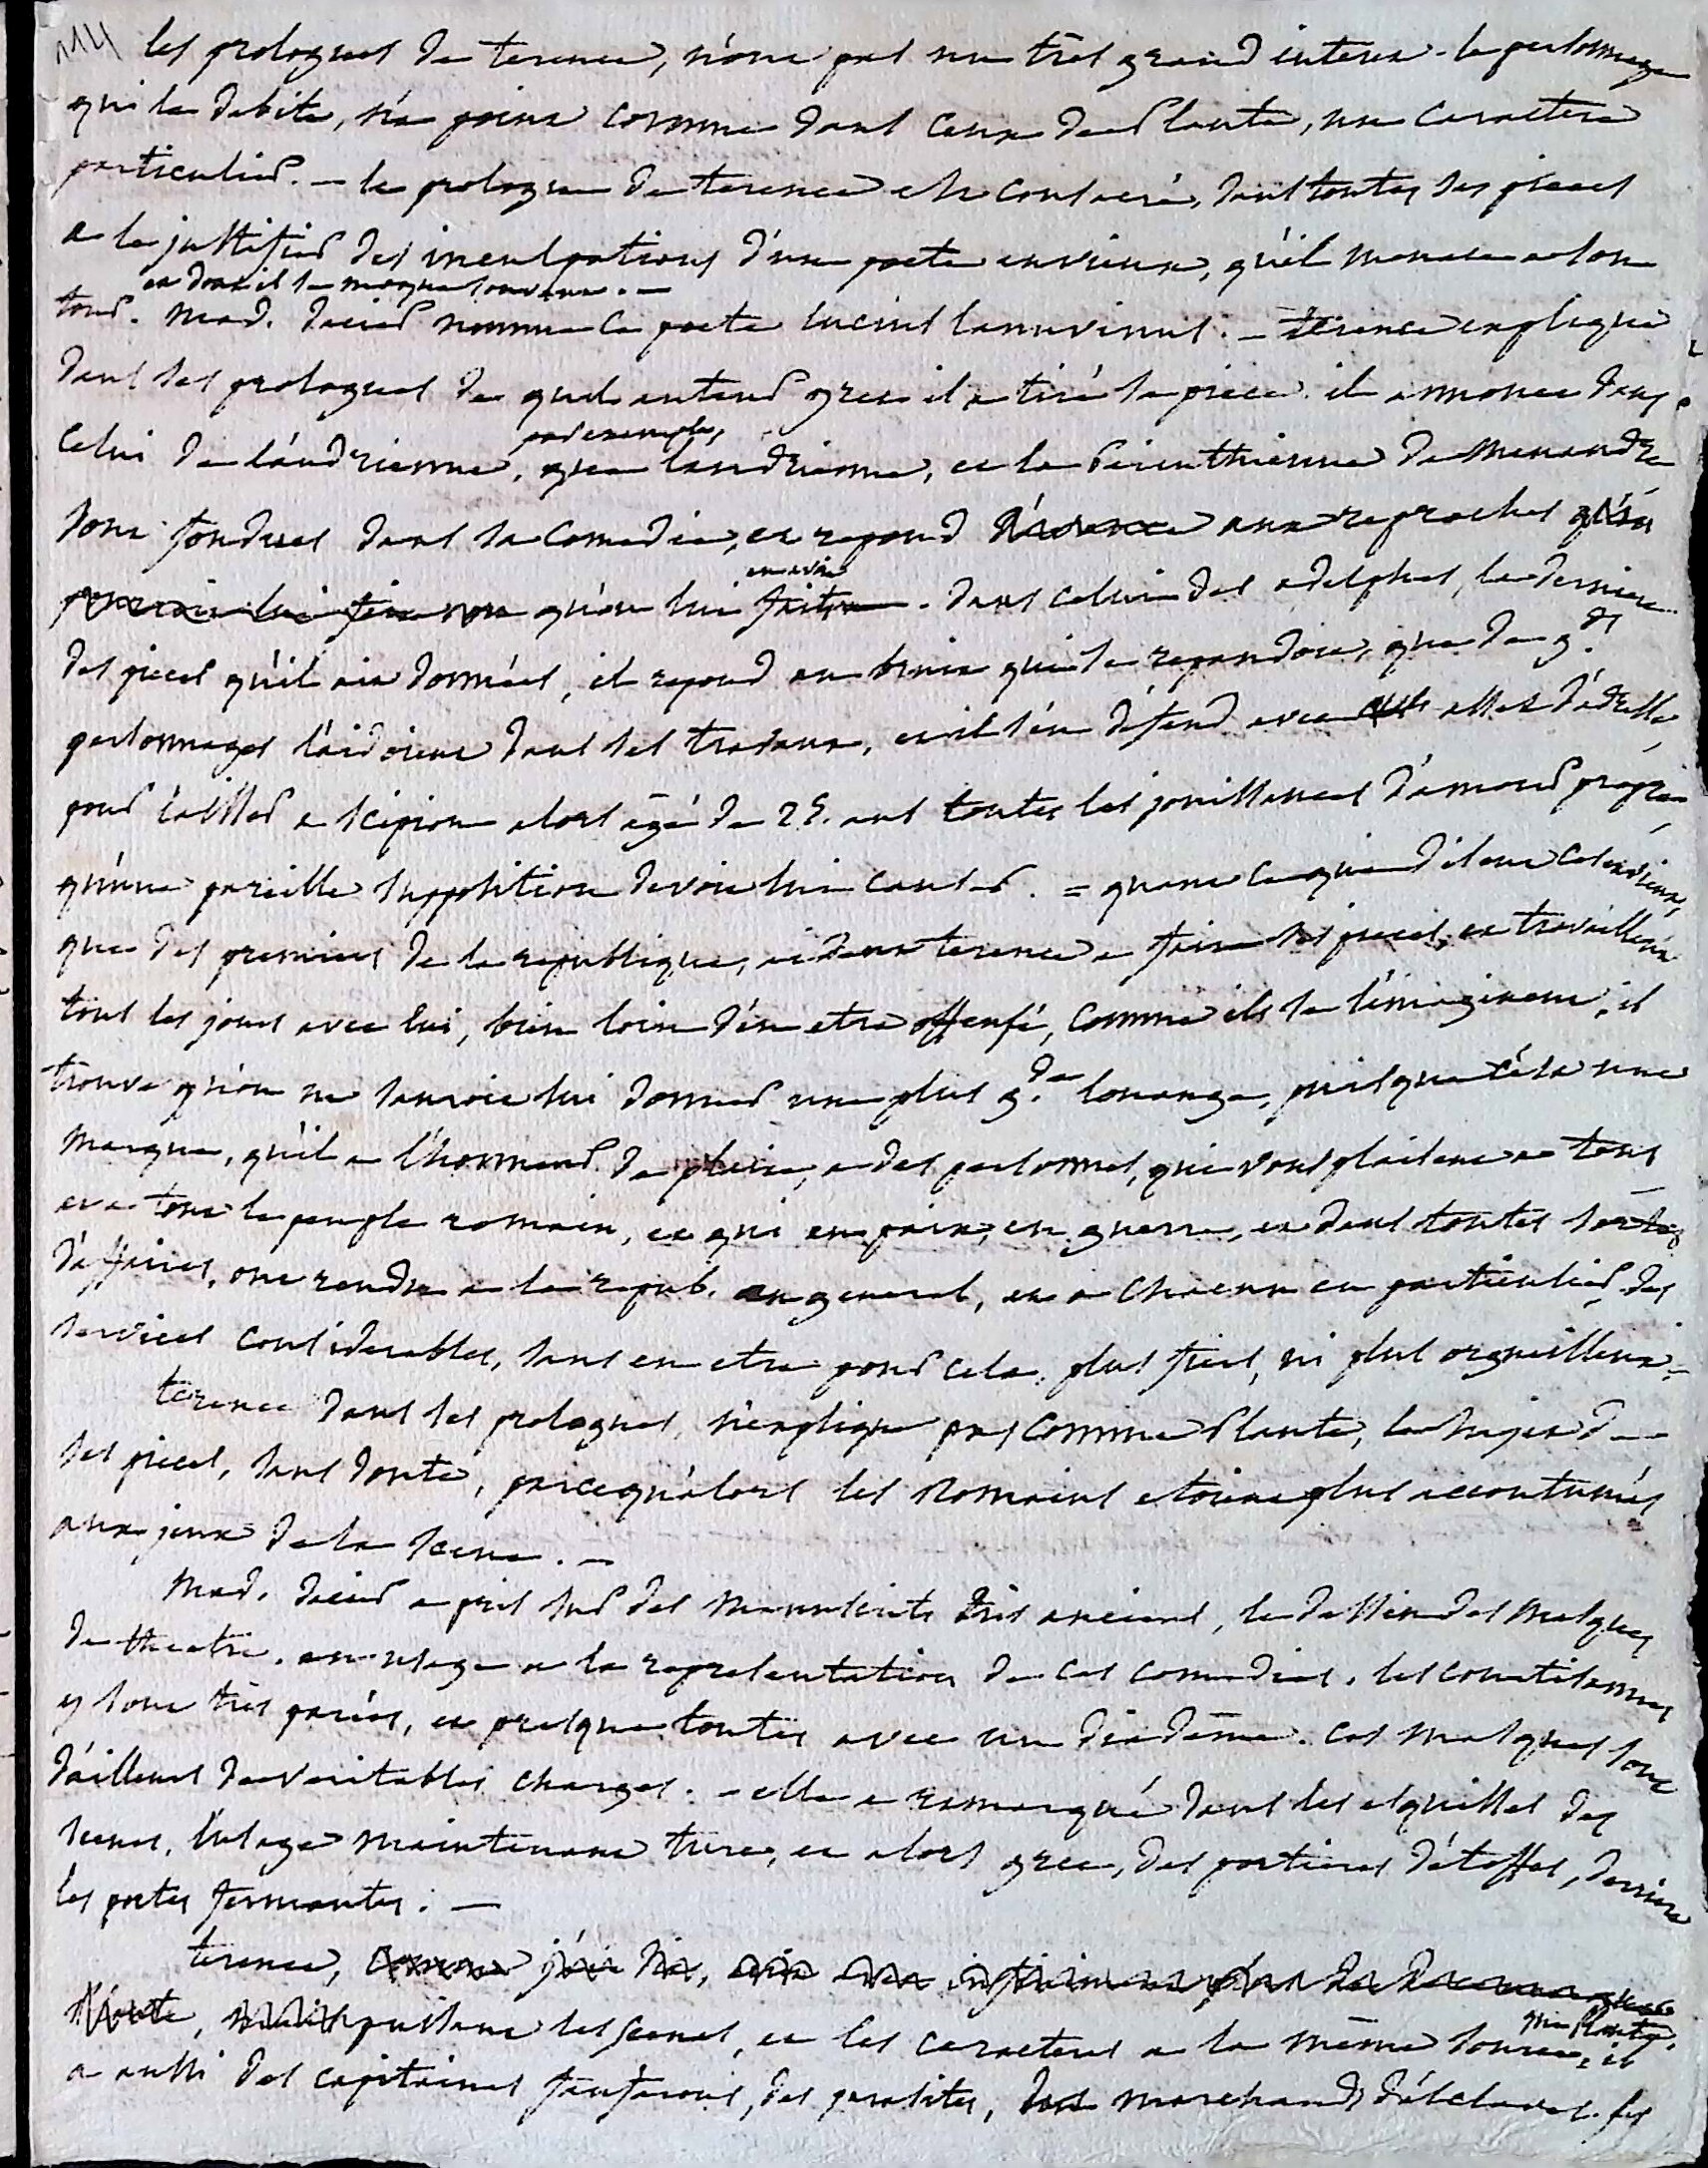 114 les prologues de terence, n'ont pas un très grand interest. le personnage
qui le debite, n'a point comme dans ceux de Plaute, un caractere
particulier. — le prologue de terence est consacré, dans toutes ses pieces
a le justifier des inculpations d'un poete envieux, qu'il menace a son
et dont il se moque souvent. —
tour. Mad. Dacier nomme ce poete Lucius Lanuvinus. — terence explique
dans ses prologues de quel auteur grec il a tiré sa piece. il annonce dans
par exemple,
celui de l'andrienne, que l'andrienne, et la Perinthienne de Menandre
sont fondues dans sa comedie, et repond d'avance aux reproches qu'on
en avoit
pourroit lui faire qu'on lui faits. Dans celui des adelphes, la derniere
des pieces qu'il ait données, il repond au bruit qui se repandoit, que de g.ds
personnages l'aidoient dans ses travaux, et il s'en défend avec assez d'adresse,
pour laisser a Scipion alors agé de 25. ans toutes les jouissances d'amour propre
qu'une pareille supposition devoit lui causer. = quant ce que disent ces envieux,
que des premiers de la republique, aident terence a faire ses pieces, et travaillent
tous les jours avec lui, bien loin d'en etre offensé, comme ils se l'imaginent, il
trouve qu'on ne sauroit lui donner une plus g.de louange, puisque c'est une
marque, qu'il a l'honneur de plaire, a des personnes, qui vous plaisent a tous
et a tout le peuple romain, et qui en paix, en guerre, et dans toutes sortes
d'affaires, ont rendu a la repub. en general, et a chacun en particulier des
services considerables, sans en etre pour cela, plus fiers, ni plus orgueilleux. =
terence dans ses prologues, n'explique pas comme Plaute, le sujet de
ses pieces, sans doute, parcequ'alors les Romains etoient plus accoutumés
aux jeux de la scene. —
Mad. Dacier a pris sur des manuscrits très anciens, le dessin des masques
de theatre, en usage a la representation de ces comedies. les courtisannes
y sont très parées, et presque toutes avec un diadême. ces masques sont
d'ailleurs de veritables charges. — elle a remarqué dans les esquisses des
scenes, l'usage maintenant turc, et alors grec, des portieres d'étoffes, derriere
les portes fermantes. —
terence, comme j'ai dit, infiniment plus de que
Plaute, puisant les scenes, et les caracteres a la même source,
que Plaute,
il
a aussi des capitaines fanfarons, des parasites, des marchands d'esclaves. ses